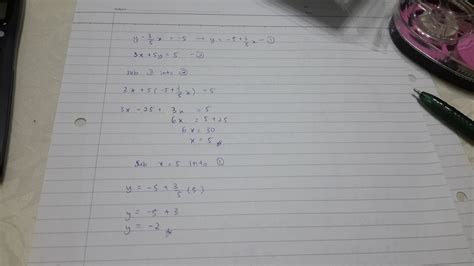 y - 3/5 x = -5 → y = -5 + 3/5 x - ①
3x + 5y = 5 - ②
sub ① into ②
3x + 5(-5 + 3/5 x) = 5
3x - 25 + 3x = 5
6x = 5 + 25
6x = 30
x = 5
sub x = 5 into ①
y = -5 + 3/5 (5)
y = -5 + 3
y = -2